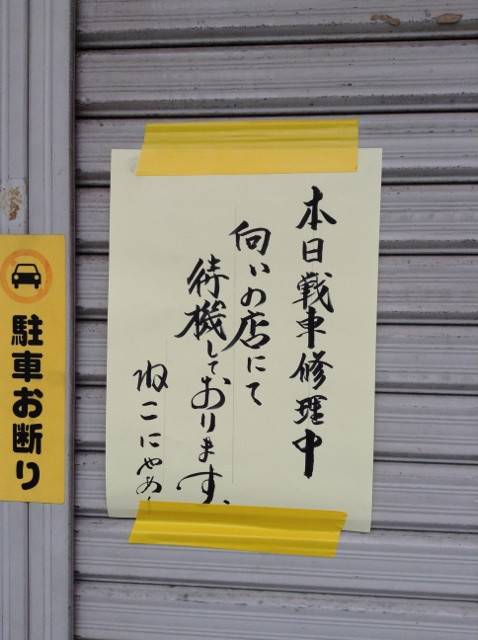 本日戦車修理中
向いの店にて
待機しております。
ねこにやめ
駐車お断り